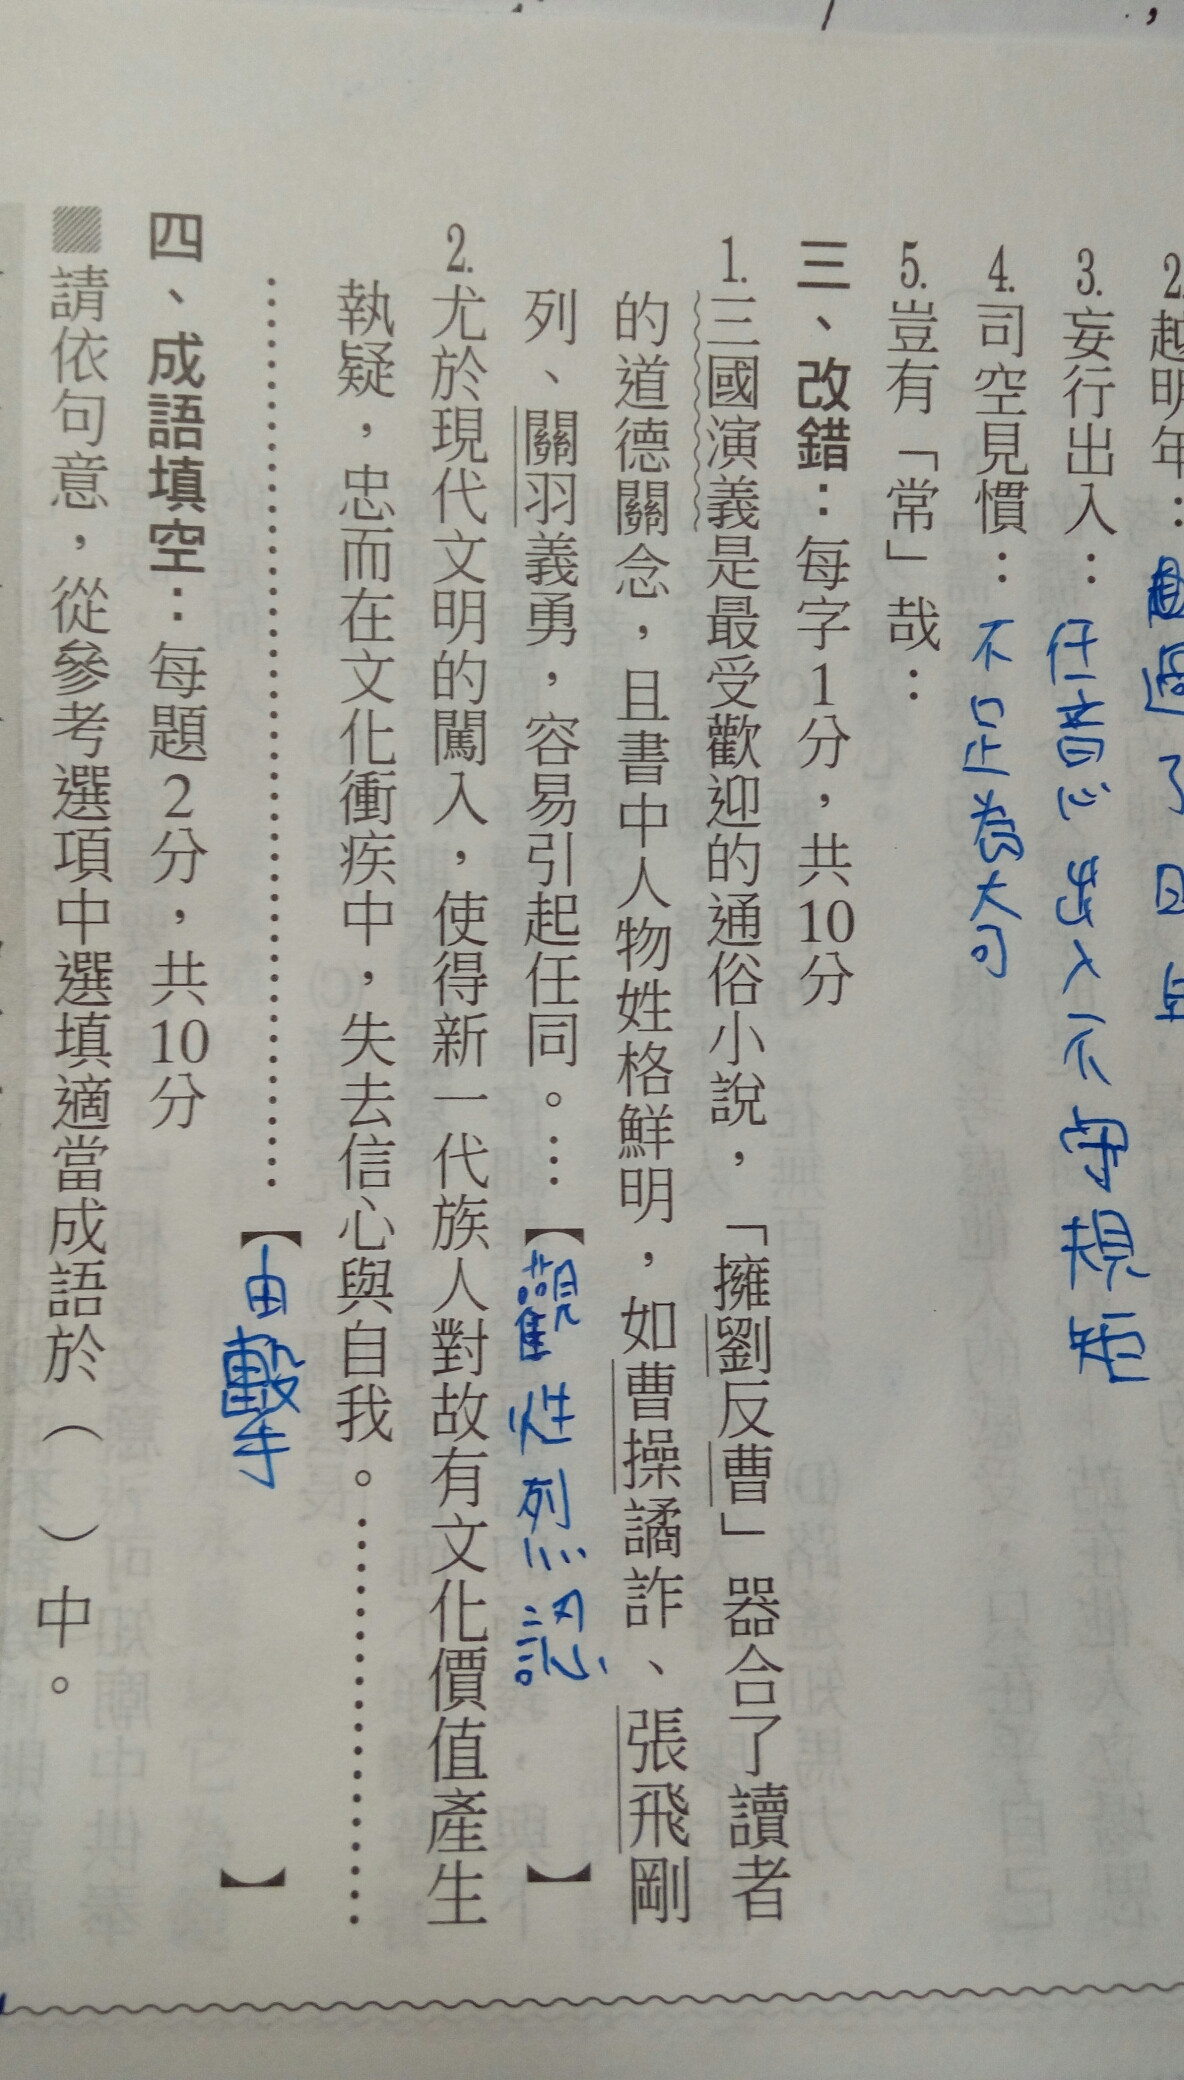 2.越明年：超過了
3.妄行出入：任意出入不守規矩
4.司空見慣：不足為大可
5.豈有「常」哉：
三、改錯：每字1分，共10分
1.三國演義是最受歡迎的通俗小說，「擁劉反曹」器合了讀者
的道德關念，且書中人物姓格鮮明，如曹操譎詐、張飛剛
列、關羽義勇，容易引起任同。…【觀性烈認】
2.尤於現代文明的闖入，使得新一代族人對故有文化價值產生
執疑，忠而在文化衝疾中，失去信心與自我。…………
………………【由擊】
四、成語填空：每題2分，共10分
請依句意，從參考選項中選填適當成語於（ ）中。